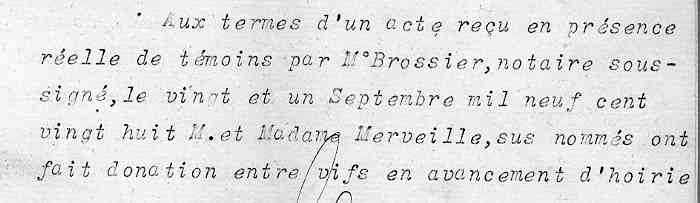 Aux termes d'un acte reçu en présence
réelle de témoins par M°Brossier,notaire sous-
signé,le vingt et un Septembre mil neuf cent
vingt huit M.et Madame Merveille,sus nommés ont
fait donation entre vifs en avancement d'hoirie